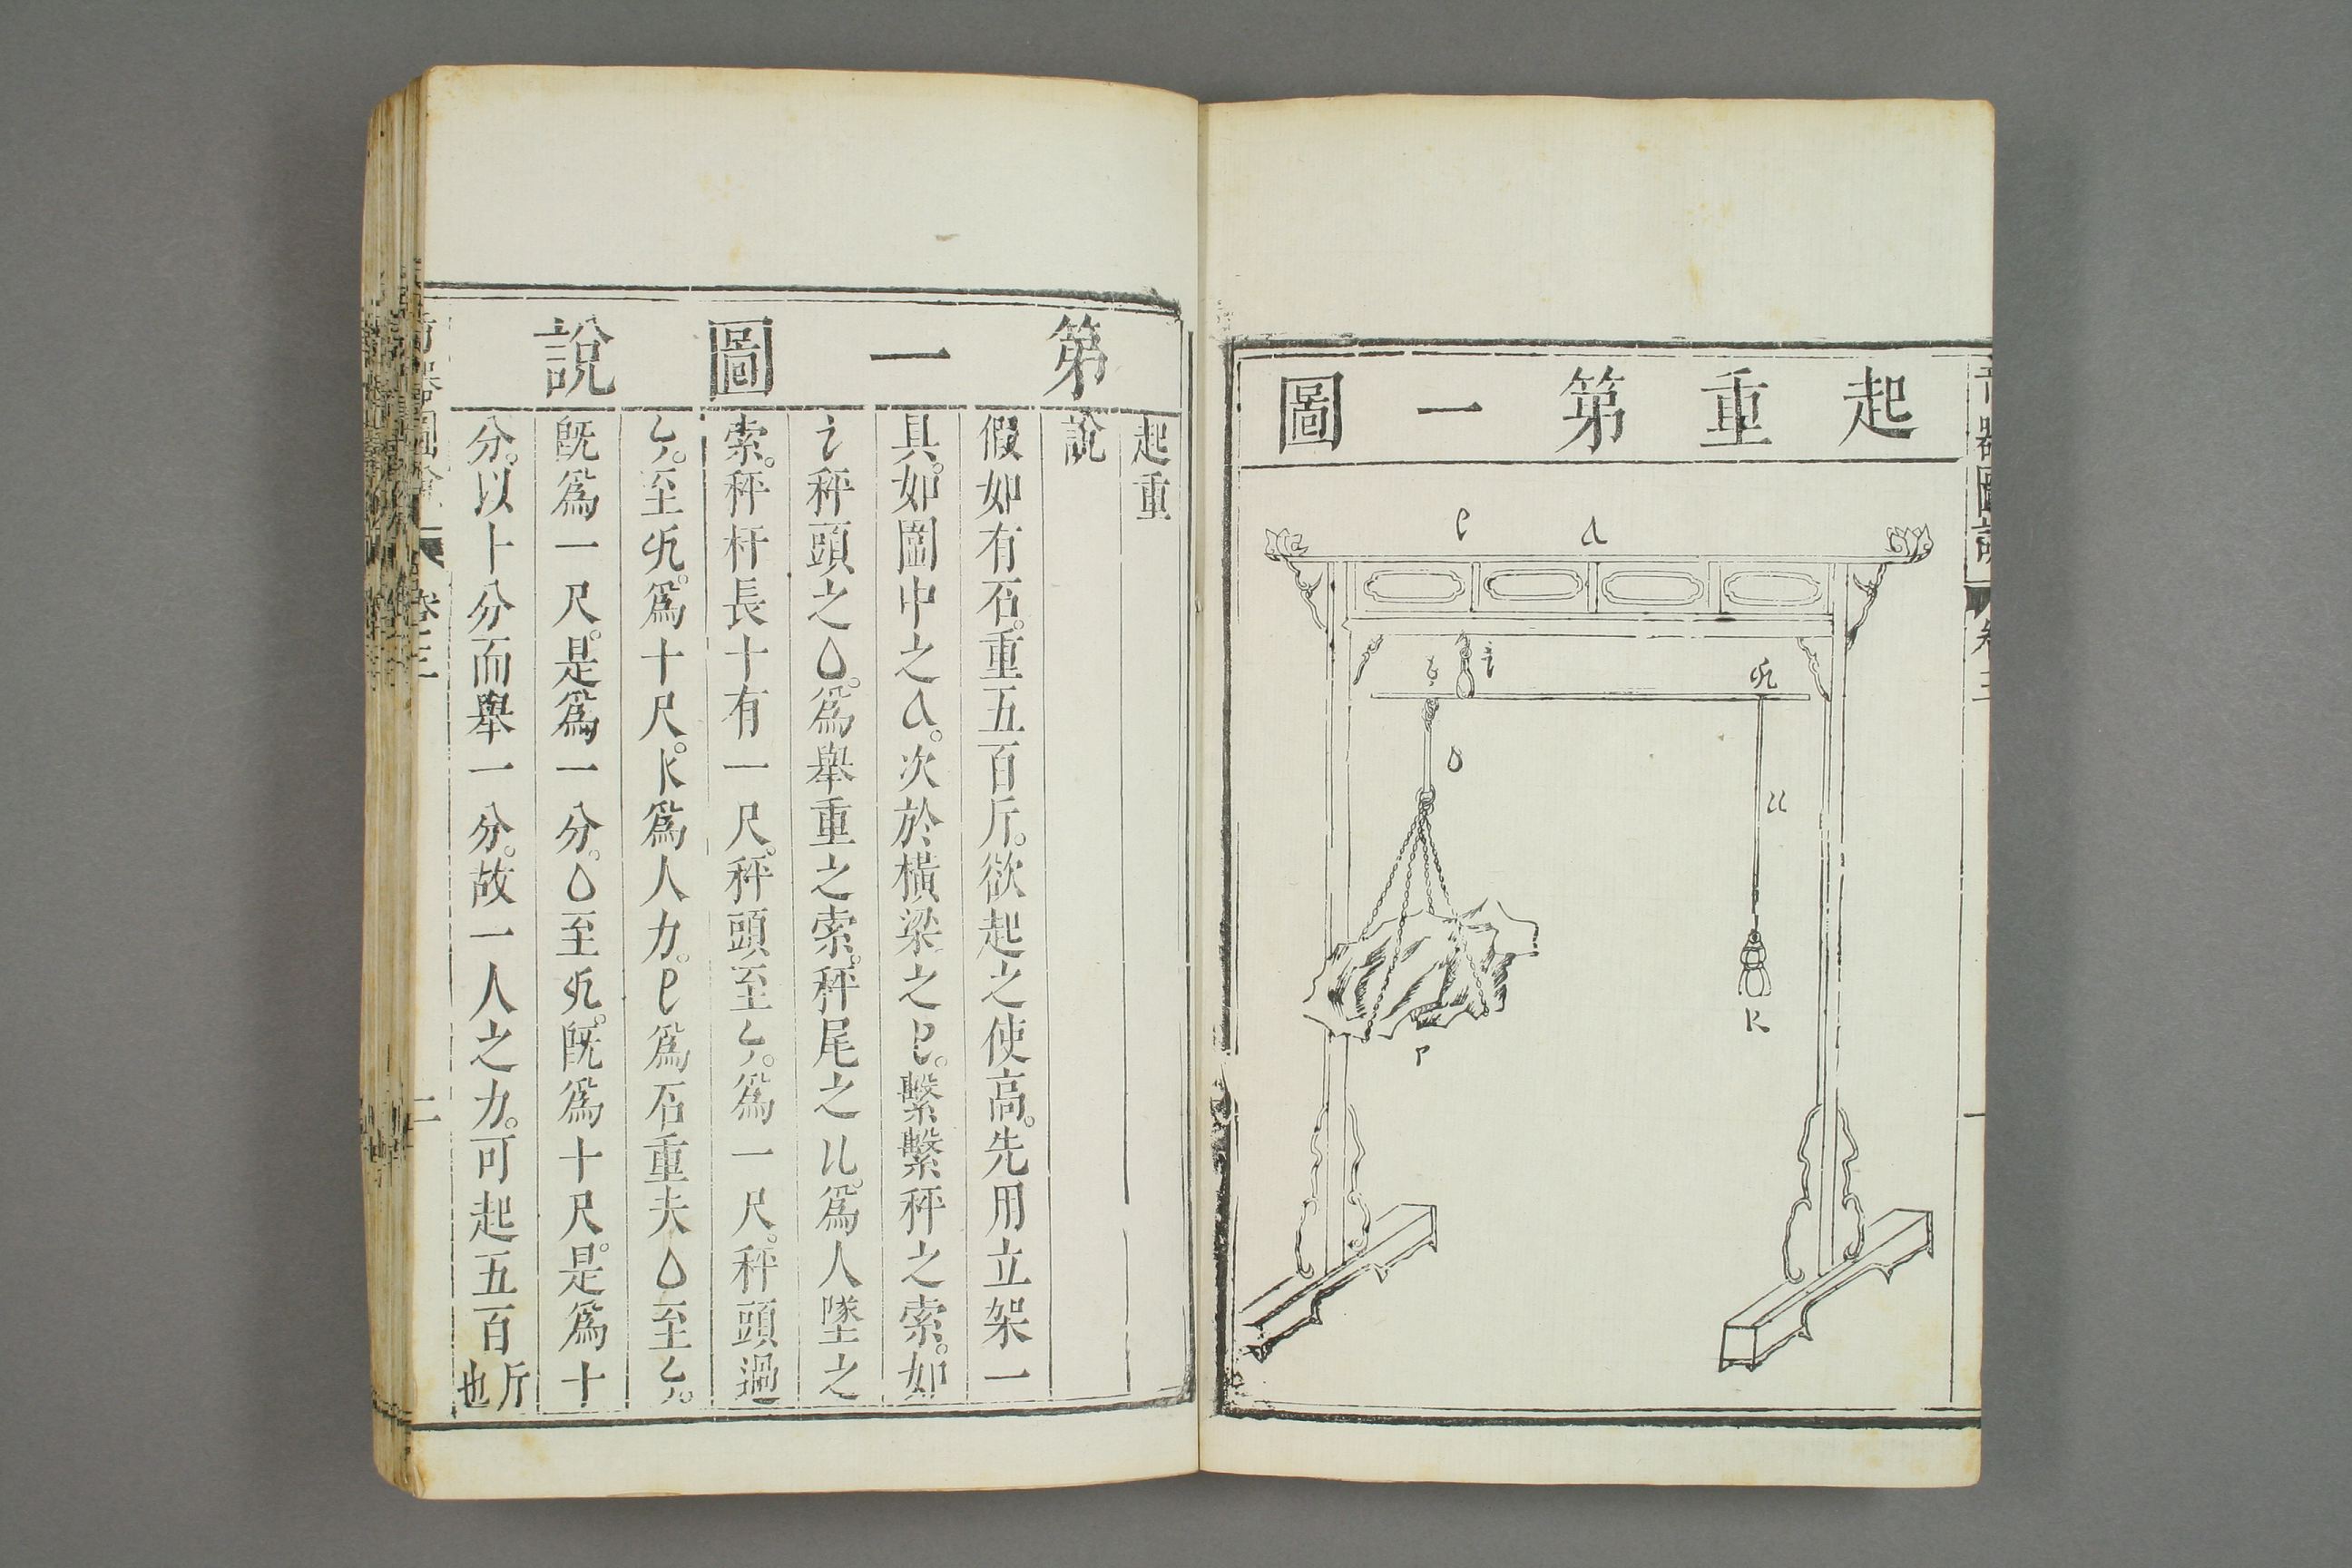 起重第一圖
e a
i
o
u
K
P
卷三
第一圖說
起重
說
假如有石。重五百斤。欲起之使高。先用立架一
具。如圖中之a。次於橫梁之e。繫繫秤之索。如
i秤頭之o。爲舉重之索。秤尾之u。爲人墜之
索。秤杆長十有一尺。秤頭至。爲一尺。秤頭過
。至。爲十尺。K爲人力。P爲石重夫o至。
旣爲一尺。是爲一分。o至。旣爲十尺。是爲十
分。以十分而舉一分。故一人之力。可起五百斤也
卷三
二